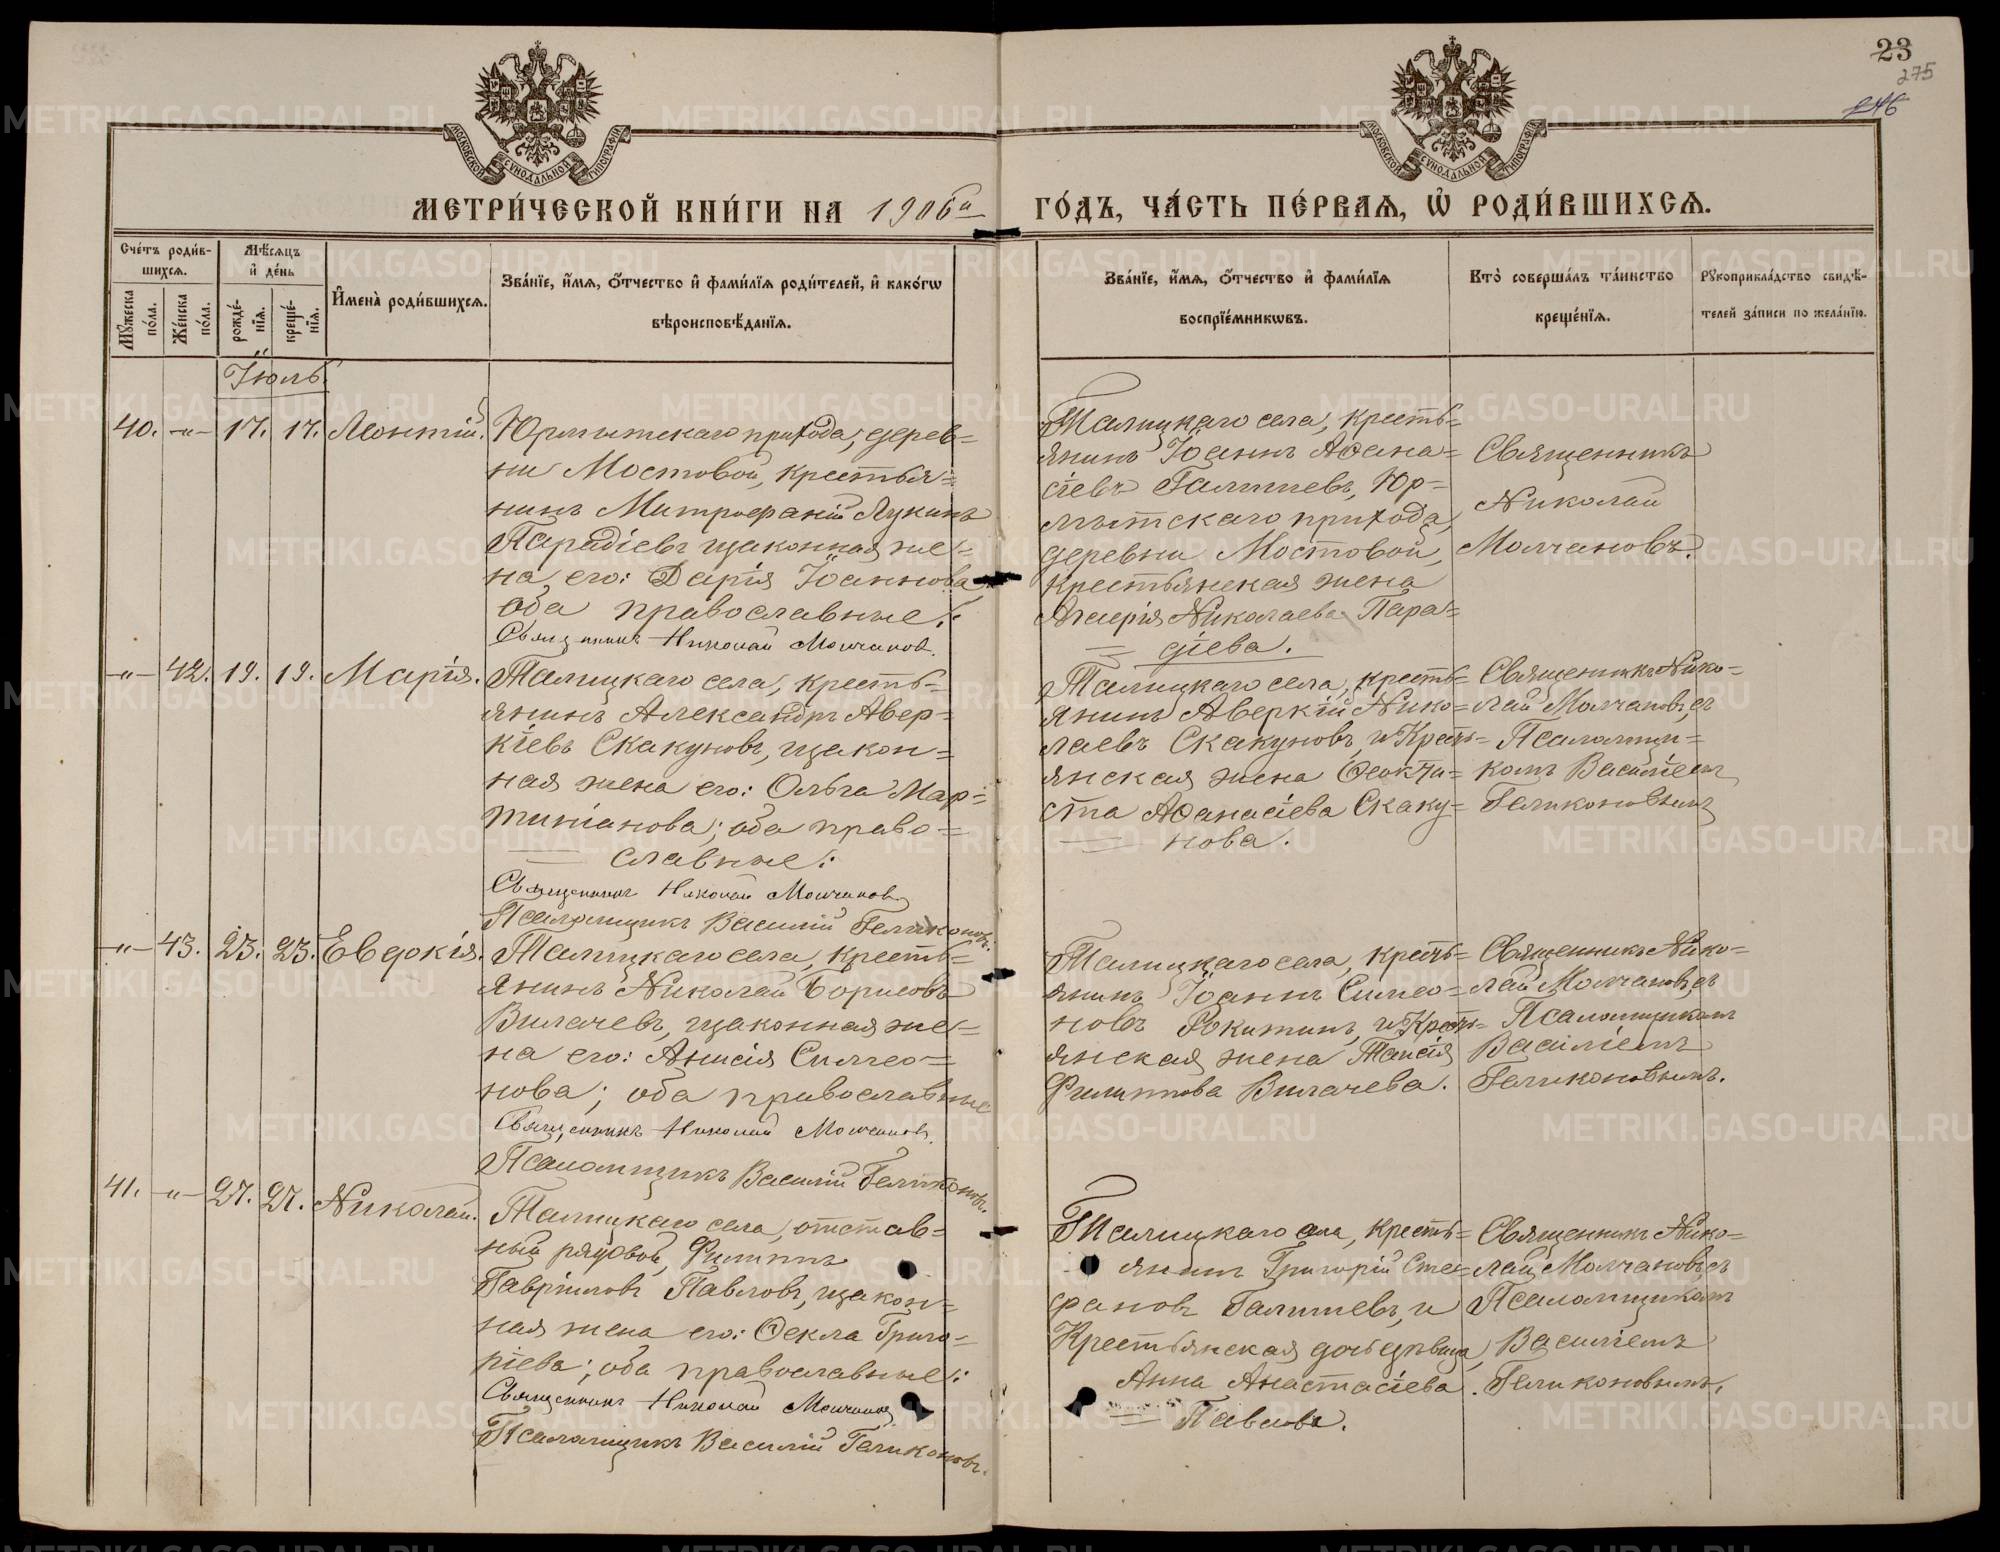 23
275
246
МЕТРИ́ЧЕСКОЙ КНИ́ГИ НА 1906й ГО́ДЪ, ЧА́СТЬ ПЕ́РВАЯ, Ѡ РОДИ́ВШИХСЯ.
Сче́тъ роди́в-
шихся.
Мѣ́сяцъ
и де́нь
Мꙋ́жеска по́ла.
Же́нска по́ла.
рожде́-
нїя.
креще́-
нїя.
И҆мена̀ роди́вшихся.
Зва́нїе, и҆́мя, ѻ҆́тчество и҆ фами́лїя роди́телей, и҆ како́гѡ
вѣроисповѣ́данїя.
Зва́нїе, и҆́мя, ѻ҆́тчество и҆ фами́лїя
воспрїе́мникѡвъ.
Кто̀ соверша́лъ та́инство
креще́нїя.
Рꙋкоприкла́дство свидѣ́-
телей за́писи по жела́нїю.
Іюль.
40. -„- 17. 17. Леонтій.
Юрмытскаго прихода, дерев=
ни Мостовой, крестья=
нинъ Митрофаній Лукинъ
Парадіевъ изаконная же=
на его: Дарія Іоаннова
оба православные.
Священникъ Николай Молчановъ.
Талицкаго села, кресть=
янинъ Іоаннъ Аѳана=
сіевъ Галишевъ, Юр=
мытскаго прихода,
деревни Мостовой,
крестьянская жена
Николаева Пара=
діева.
Священникъ
Николай
Молчановъ.
-„- 42. 19. 19. Марія.
Талицкаго села, кресть=
янинъ Александръ Авер=
кіевъ Скакуновъ, изакон=
ная жена его: Ольга Мар=
тиніанова; оба право=
славные.
Священникъ Николай Молчановъ
Псаломщикъ Василій Геликоновъ.
Талицкаго села, кресть=
янинъ Аверкій Нико=
лаевъ Скакуновъ, и Кресть=
янская жена Ѳеокти=
ста Аѳанасіева Скаку=
нова.
Священникъ Нико=
лай Молчановъ, съ
Псаломщи=
комъ Василіемъ
Геликоновымъ
-„- 43. 23. 23. Евдокія.
Талицкаго села, кресть=
янинъ Николай Борисовъ
Вилачевъ, изаконная же=
на его: Анисія Симео=
нова; оба православные
Священникъ Николай Молчановъ.
Псаломщикъ Василій Геликоновъ.
Талицкаго села, кресть=
янинъ Іоаннъ Симео=
новъ Рокитинъ, и Кресть=
янская жена Таисія
Филиппова Вилачева.
Священникъ Нико=
лай Молчановъ, съ
Псаломщикомъ
Василіемъ
Геликоновымъ.
41. -„- 27. 27. Николай.
Талицкаго села, отстав=
ный рядовой, Филиппъ
Гавріиловъ Павловъ, изакон=
ная жена его: Ѳекла Григо=
ріева; оба православные.
Священникъ Николай Молчановъ
Псаломщикъ Василій Геликоновъ.
Талицкаго села, кресть=
янинъ Григорій Сте=
фановъ Галишевъ, и
Крестьянская дочь дѣвица,
Анна Анастасіева
Павлова.
Священникъ Нико=
лай Молчановъ, съ
Псаломщикомъ
Василіемъ
Геликоновымъ.
METRIKI.GASO-URAL.RU